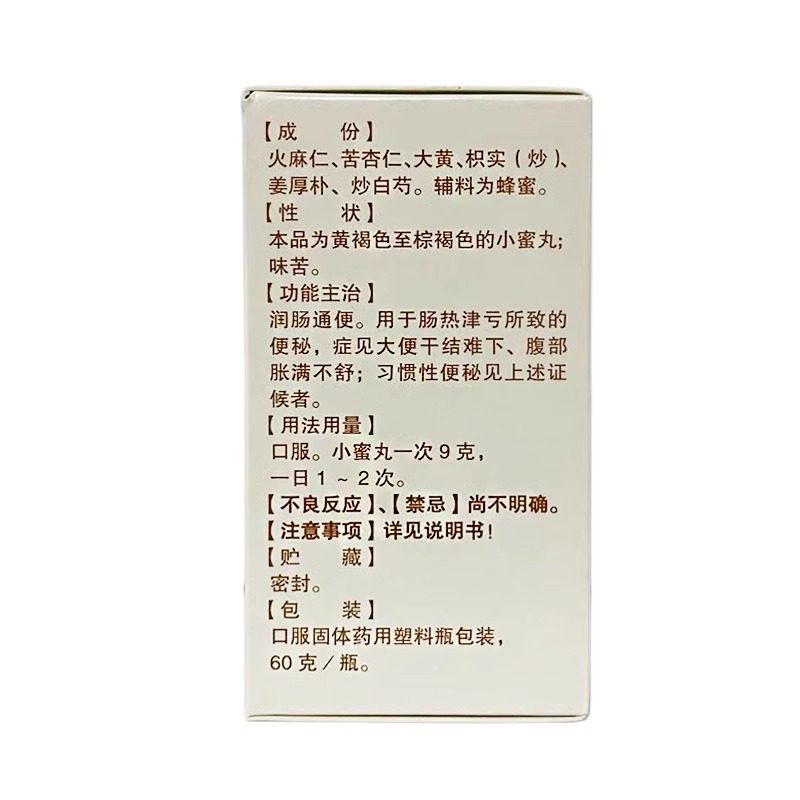 【成　　份】
火麻仁、苦杏仁、大黄、枳实（炒）、
姜厚朴、炒白芍。辅料为蜂蜜。
【性　　状】
本品为黄褐色至棕褐色的小蜜丸；
味苦。
【功能主治】
润肠通便。用于肠热津亏所致的
便秘，症见大便干结难下、腹部
胀满不舒；习惯性便秘见上述证
候者。
【用法用量】
口服。小蜜丸一次 9 克，
一日 1 ~ 2 次。
【不良反应】、【禁忌】尚不明确。
【注意事项】详见说明书！
【贮　　藏】
密封。
【包　　装】
口服固体药用塑料瓶包装，
60 克／瓶。